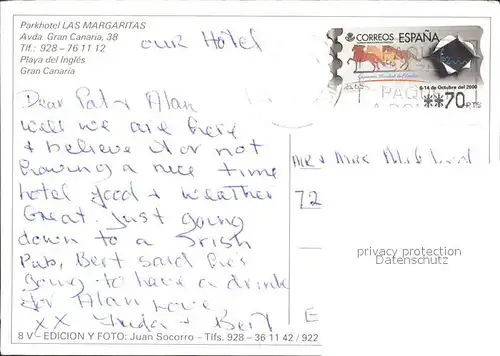 Parkhotel LAS MARGARITAS
Avda. Gran Canaria, 38
Tlf.: 928 - 76 11 12
Playa del Inglés
Gran Canaria
our Hotel
CORREOS ESPAÑA
6-14 de Octubre del 2000
**70 PTS
Dear Pat + Alan
well we are here
+ believe it or not
having a nice time
hotel good + weather
Great. Just going
down to a Irish
Pub, Bert said he's
going to have a drink
for Alan love
xx Freda + Bert
Mr + Mrs
72
E
privacy protection
Datenschutz
8 V - EDICION Y FOTO: Juan Socorro - Tlfs. 928 - 36 11 42 / 922